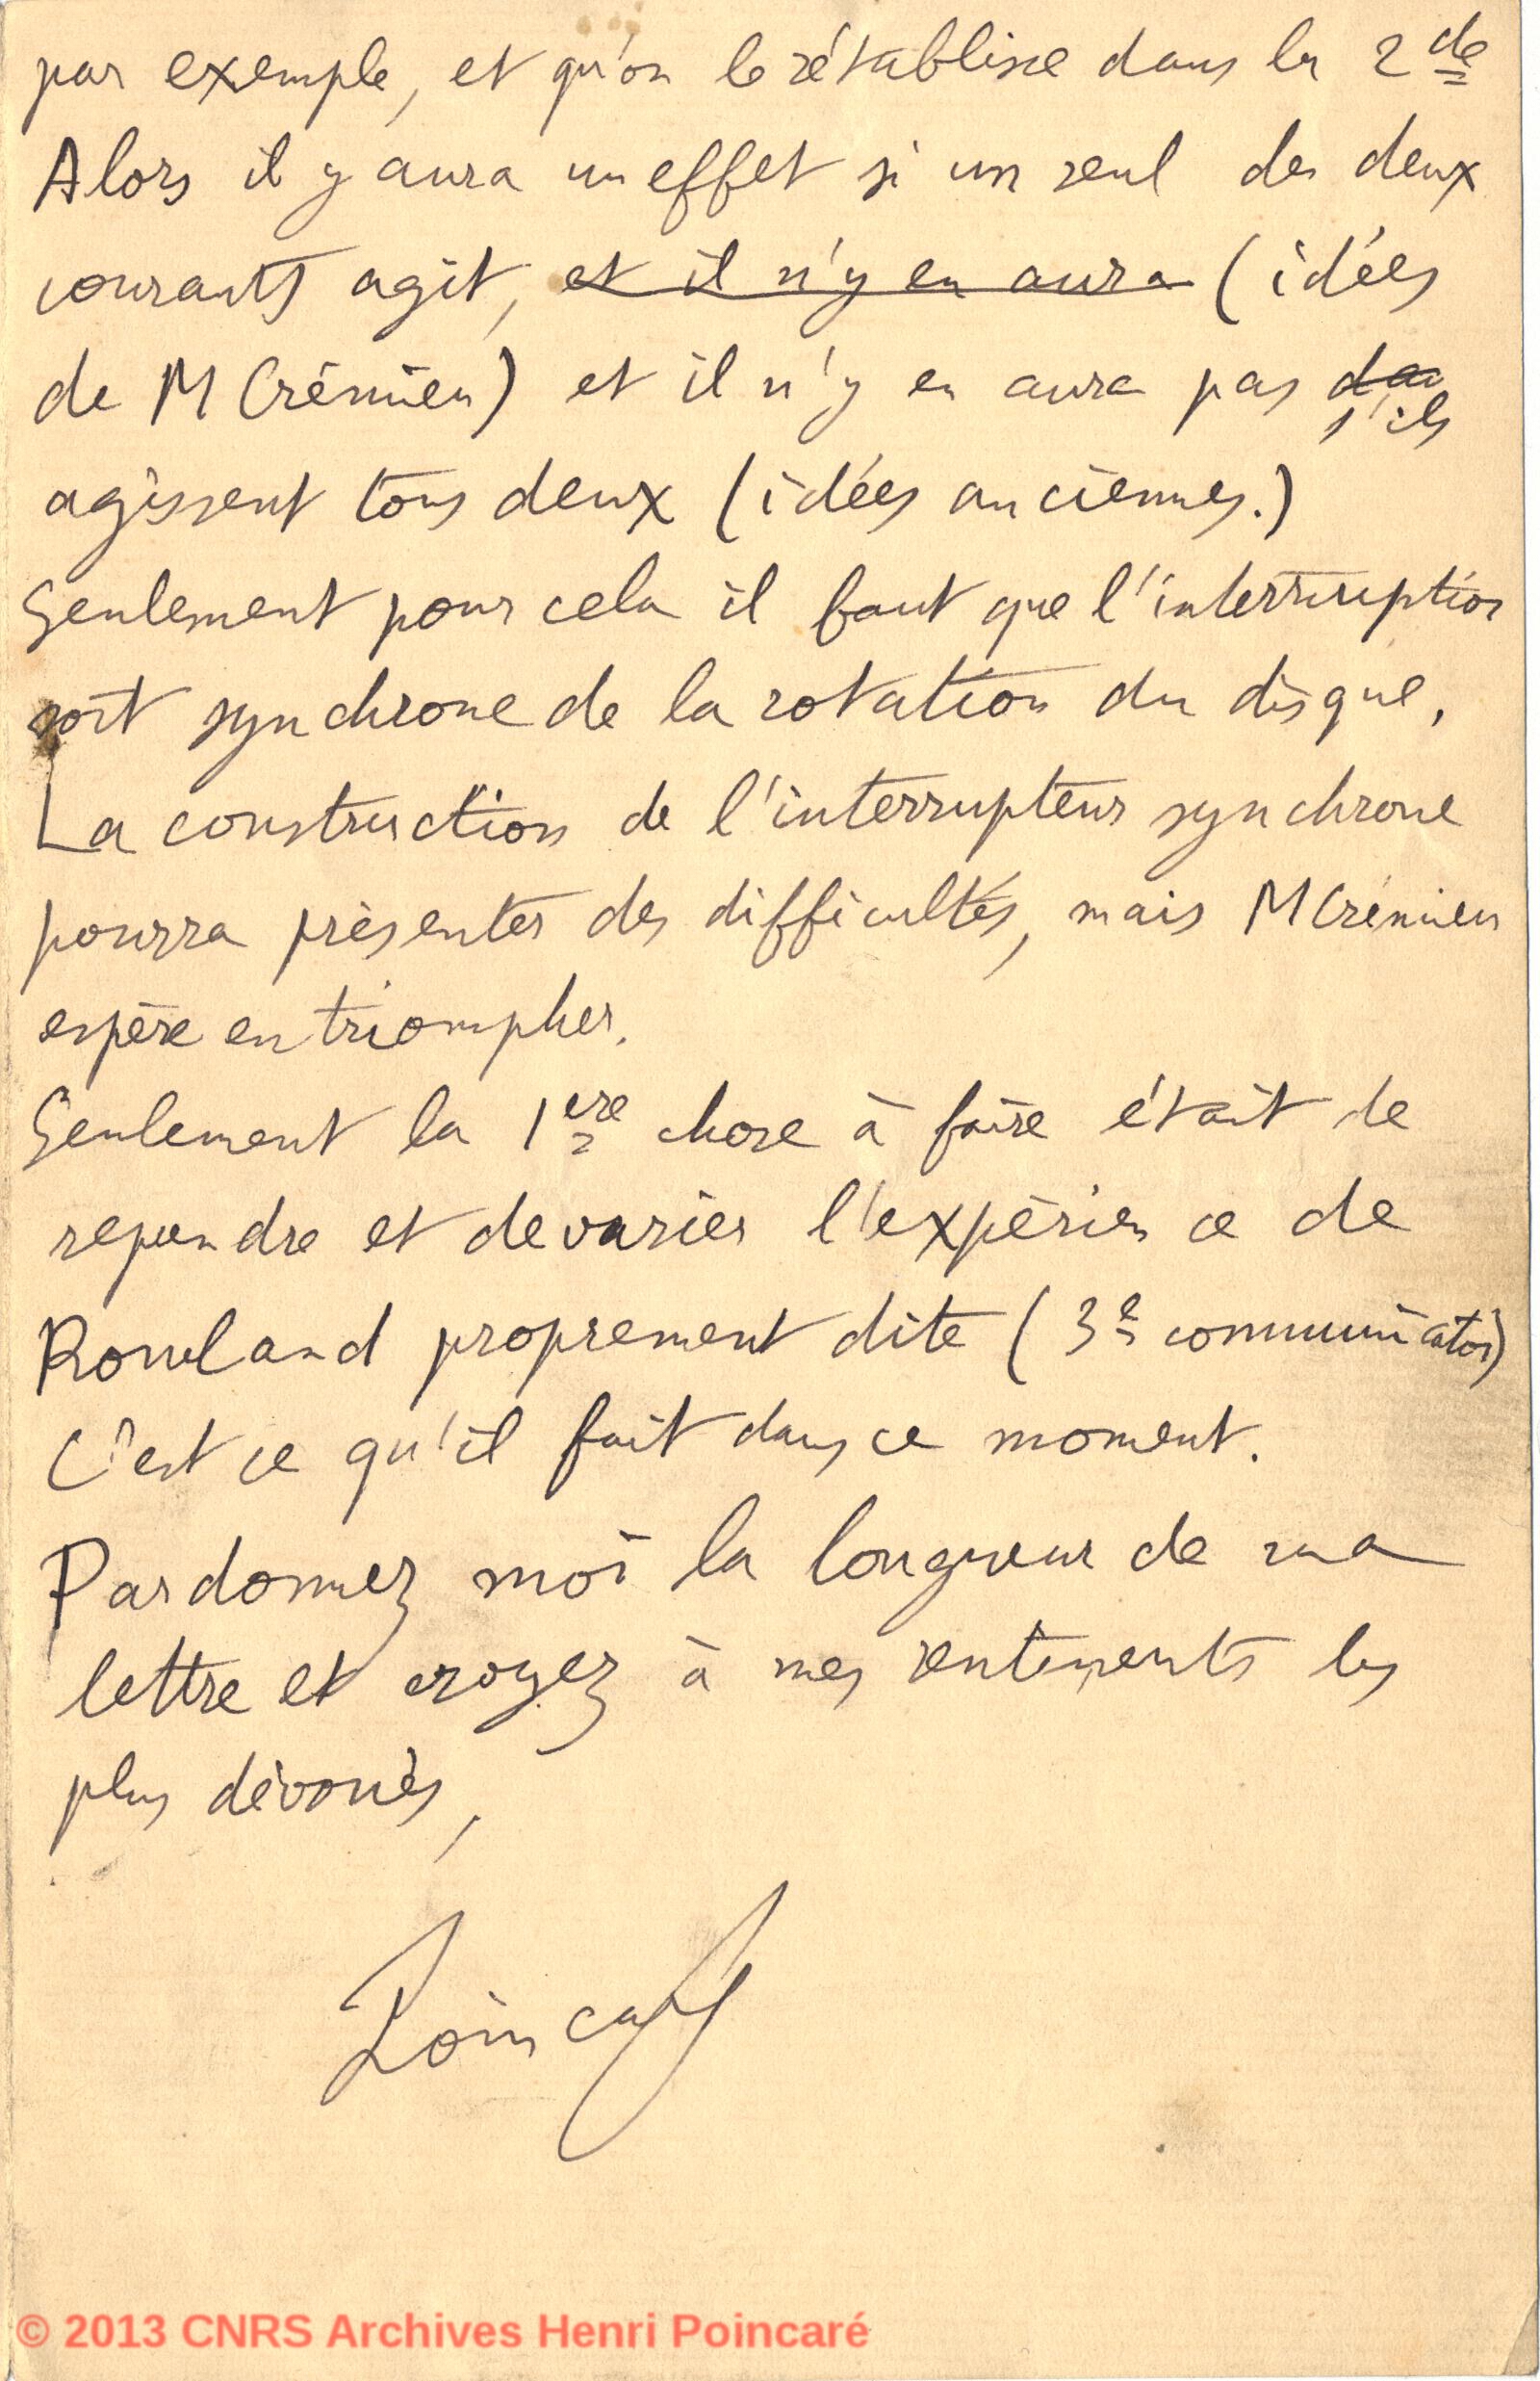 par exemple, et qu'on le rétablisse dans la 2de
Alors il y aura un effet si un seul des deux
courants agit, et il n'y en aura (idées
de M Crémieu) et il n'y en aura pas dan s'ils
agissent tous deux (idées anciennes.)
Seulement pour cela il faut que l'interruption
soit synchrone de la rotation du disque.
La construction de l'interrupteur synchrone
pourra présenter des difficultés, mais M Crémieu
espère en triompher.
Seulement la 1ere chose à faire était de
reprendre et de varier l'expérience de
Rowland proprement dite (3e communication)
C'est ce qu'il fait dans ce moment.
Pardonnez moi la longueur de ma
lettre et croyez à mes sentiments les
plus dévoués,
Poincaré
© 2013 CNRS Archives Henri Poincaré